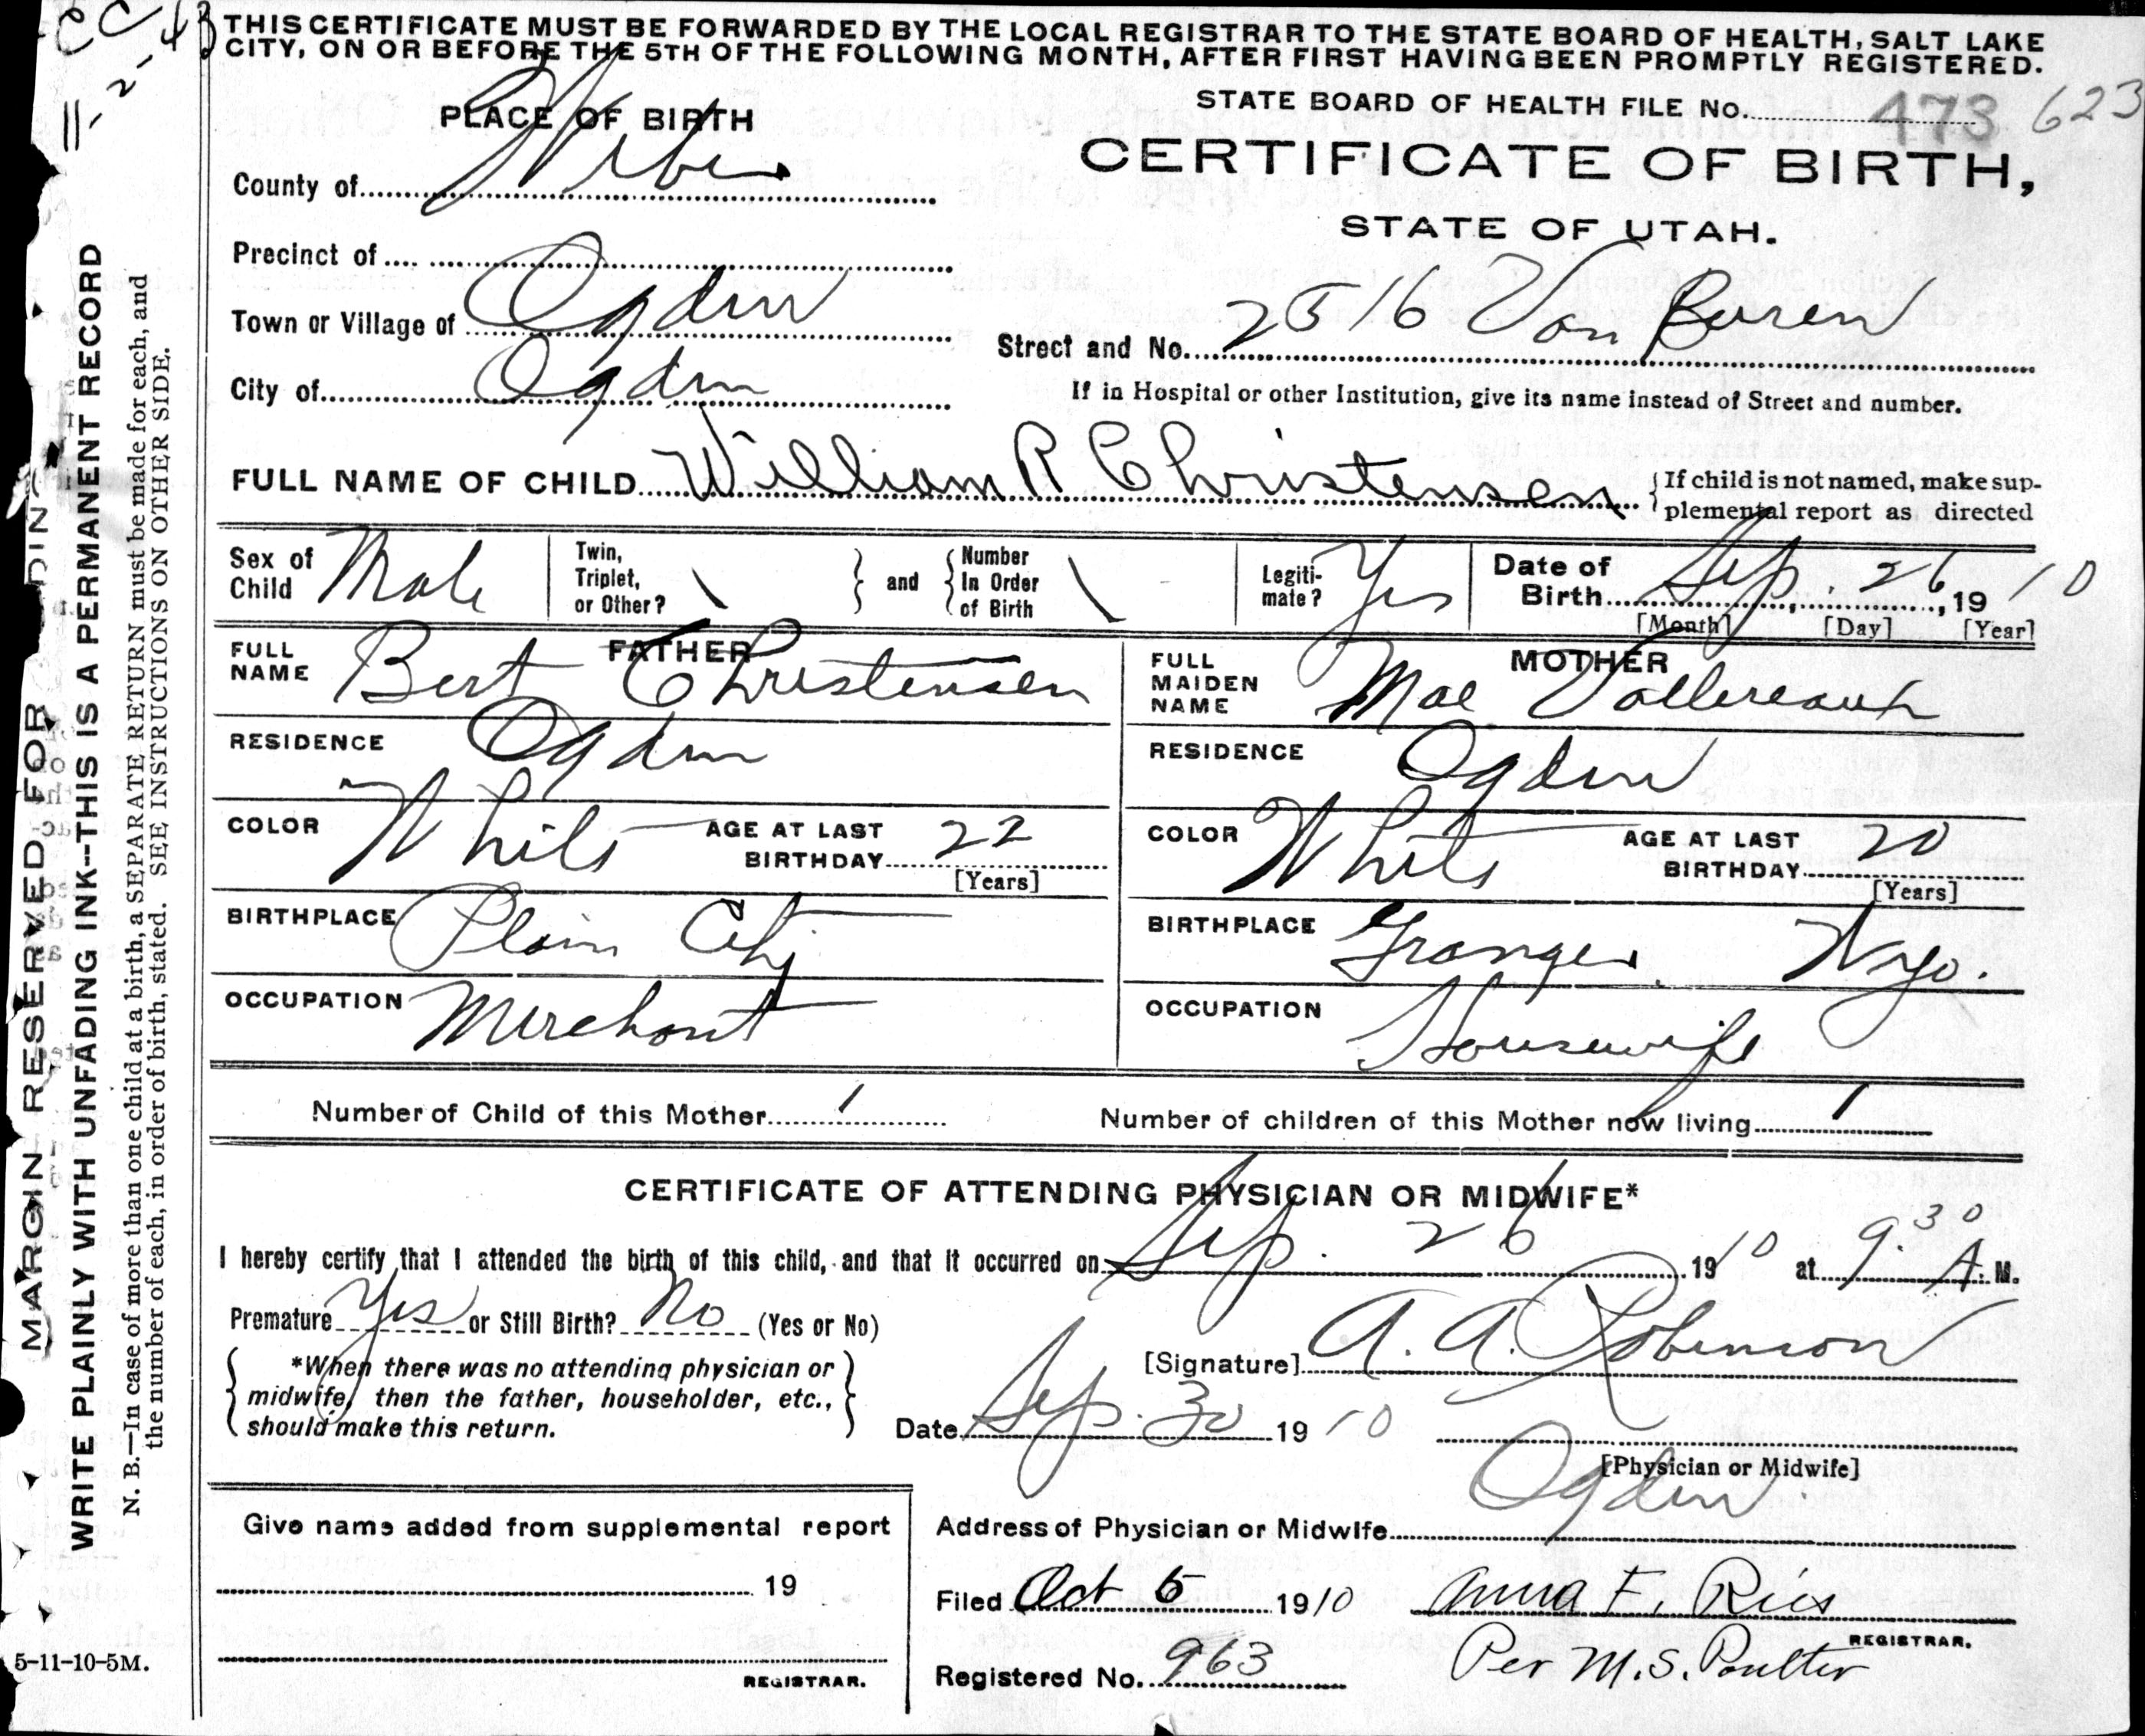 CC
11-2-43
THIS CERTIFICATE MUST BE FORWARDED BY THE LOCAL REGISTRAR TO THE STATE BOARD OF HEALTH, SALT LAKE
CITY, ON OR BEFORE THE 5TH OF THE FOLLOWING MONTH, AFTER FIRST HAVING BEEN PROMPTLY REGISTERED.
STATE BOARD OF HEALTH FILE No. 473 623
PLACE OF BIRTH
CERTIFICATE OF BIRTH,
STATE OF UTAH.
County of Weber
Precinct of
Town or Village of Ogden
Street and No. 2516 Van Buren
City of Ogden
If in Hospital or other Institution, give its name instead of Street and number.
FULL NAME OF CHILD William R Christensen
{If child is not named, make sup-
plemental report as directed
Sex of Child Male
Twin, Triplet, or Other? \
} and {
Number In Order of Birth \
Legiti-mate? Yes
Date of Birth Sep. 26, 1910
[Month] [Day] [Year]
FATHER
FULL NAME Bert Christensen
MOTHER
FULL MAIDEN NAME Mae
RESIDENCE Ogden
RESIDENCE Ogden
COLOR White AGE AT LAST BIRTHDAY 22 [Years]
COLOR White AGE AT LAST BIRTHDAY 20 [Years]
BIRTHPLACE Plain City
BIRTHPLACE Granger, Wyo.
OCCUPATION Merchant
OCCUPATION Housewife
Number of Child of this Mother 1
Number of children of this Mother now living 1
CERTIFICATE OF ATTENDING PHYSICIAN OR MIDWIFE*
I hereby certify that I attended the birth of this child, and that it occurred on Sep. 26 1910 at 9.30 A. M.
Premature Yes or Still Birth? No (Yes or No)
{*When there was no attending physician or
midwife, then the father, householder, etc.,
should make this return.}
[Signature] A. A. Robinson
Date Sep. 30 1910
[Physician or Midwife]
Address of Physician or Midwife Ogden
Give name added from supplemental report
19
REGISTRAR.
Filed Oct 5 1910 Anna F. Ries
REGISTRAR.
Registered No. 963
Per M. S. Poulter
MARGIN RESERVED FOR
WRITE PLAINLY WITH UNFADING INK--THIS IS A PERMANENT RECORD
N. B.—In case of more than one child at a birth, a SEPARATE RETURN must be made for each, and
the number of each, in order of birth, stated. SEE INSTRUCTIONS ON OTHER SIDE.
5-11-10-5M.